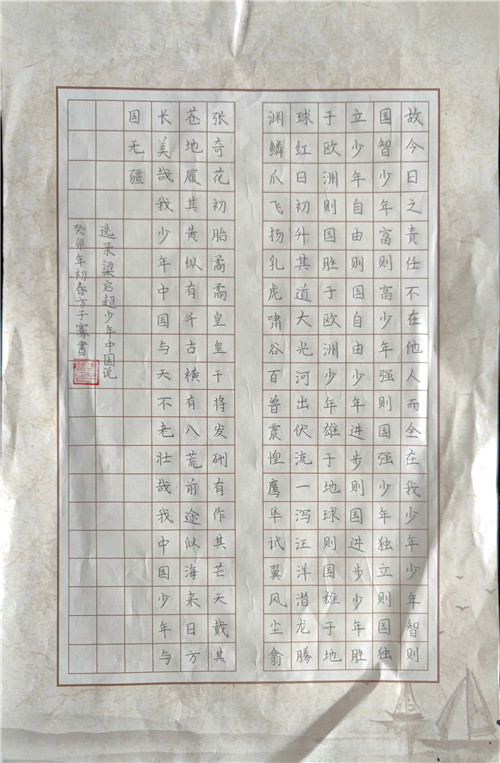 故今日之责任不在他人而全在我少年少年智则
国智少年富则富少年强则国强少年独立则国独
立少年自由则国自由少年进步则国进步少年胜
于欧洲则国胜于欧洲少年雄于地球则国雄于地
球红日初升其道大光河出伏流一泻汪洋潜龙腾
渊鳞爪飞扬乳虎啸谷百兽震惶鹰隼试翼风尘翕
张奇花初胎矞矞皇皇干将发硎有作其芒天戴其
苍地履其黄纵有千古横有八荒前途似海来日方
长美哉我少年中国与天不老壮哉我中国少年与
国无疆
选录梁启超少年中国说
癸卯年初春方子骞書